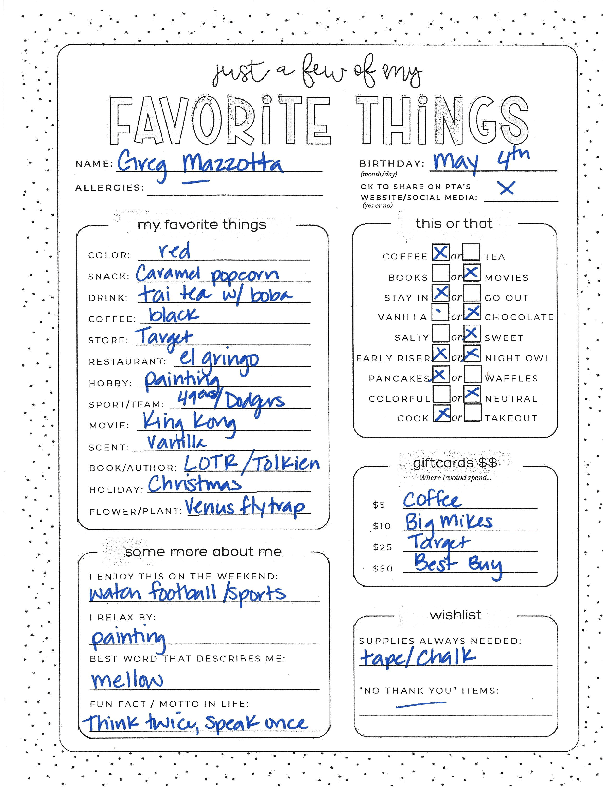 just a few of my
FAVORITE THINGS
NAME: Greg Mazzotta
BIRTHDAY: May 4th
(month/day)
ALLERGIES:
OK TO SHARE ON PTA'S
WEBSITE/SOCIAL MEDIA: X
(yes or no)
my favorite things
COLOR: red
SNACK: Caramel popcorn
DRINK: tai tea w/ boba
COFFEE: black
STORE: Target
RESTAURANT: el gringo
HOBBY: painting
SPORT/TEAM: 49ers/Dodgers
MOVIE: King Kong
SCENT: Vanilla
BOOK/AUTHOR: LOTR/Tolkien
HOLIDAY: Christmas
FLOWER/PLANT: Venus flytrap
some more about me
I ENJOY THIS ON THE WEEKEND:
watch football/sports
I RELAX BY:
painting
BEST WORD THAT DESCRIBES ME:
mellow
FUN FACT / MOTTO IN LIFE:
Think twice, speak once
this or that
COFFEE X or TEA
BOOKS or X MOVIES
STAY IN X or GO OUT
VANILLA or X CHOCOLATE
SALTY or X SWEET
EARLY RISER X or X NIGHT OWL
PANCAKES X or WAFFLES
COLORFUL or X NEUTRAL
COOK X or TAKEOUT
giftcards $$
Where I would spend...
$5 Coffee
$10 Big Mikes
$25 Target
$50 Best Buy
wishlist
SUPPLIES ALWAYS NEEDED:
tape/Chalk
"NO THANK YOU" ITEMS: